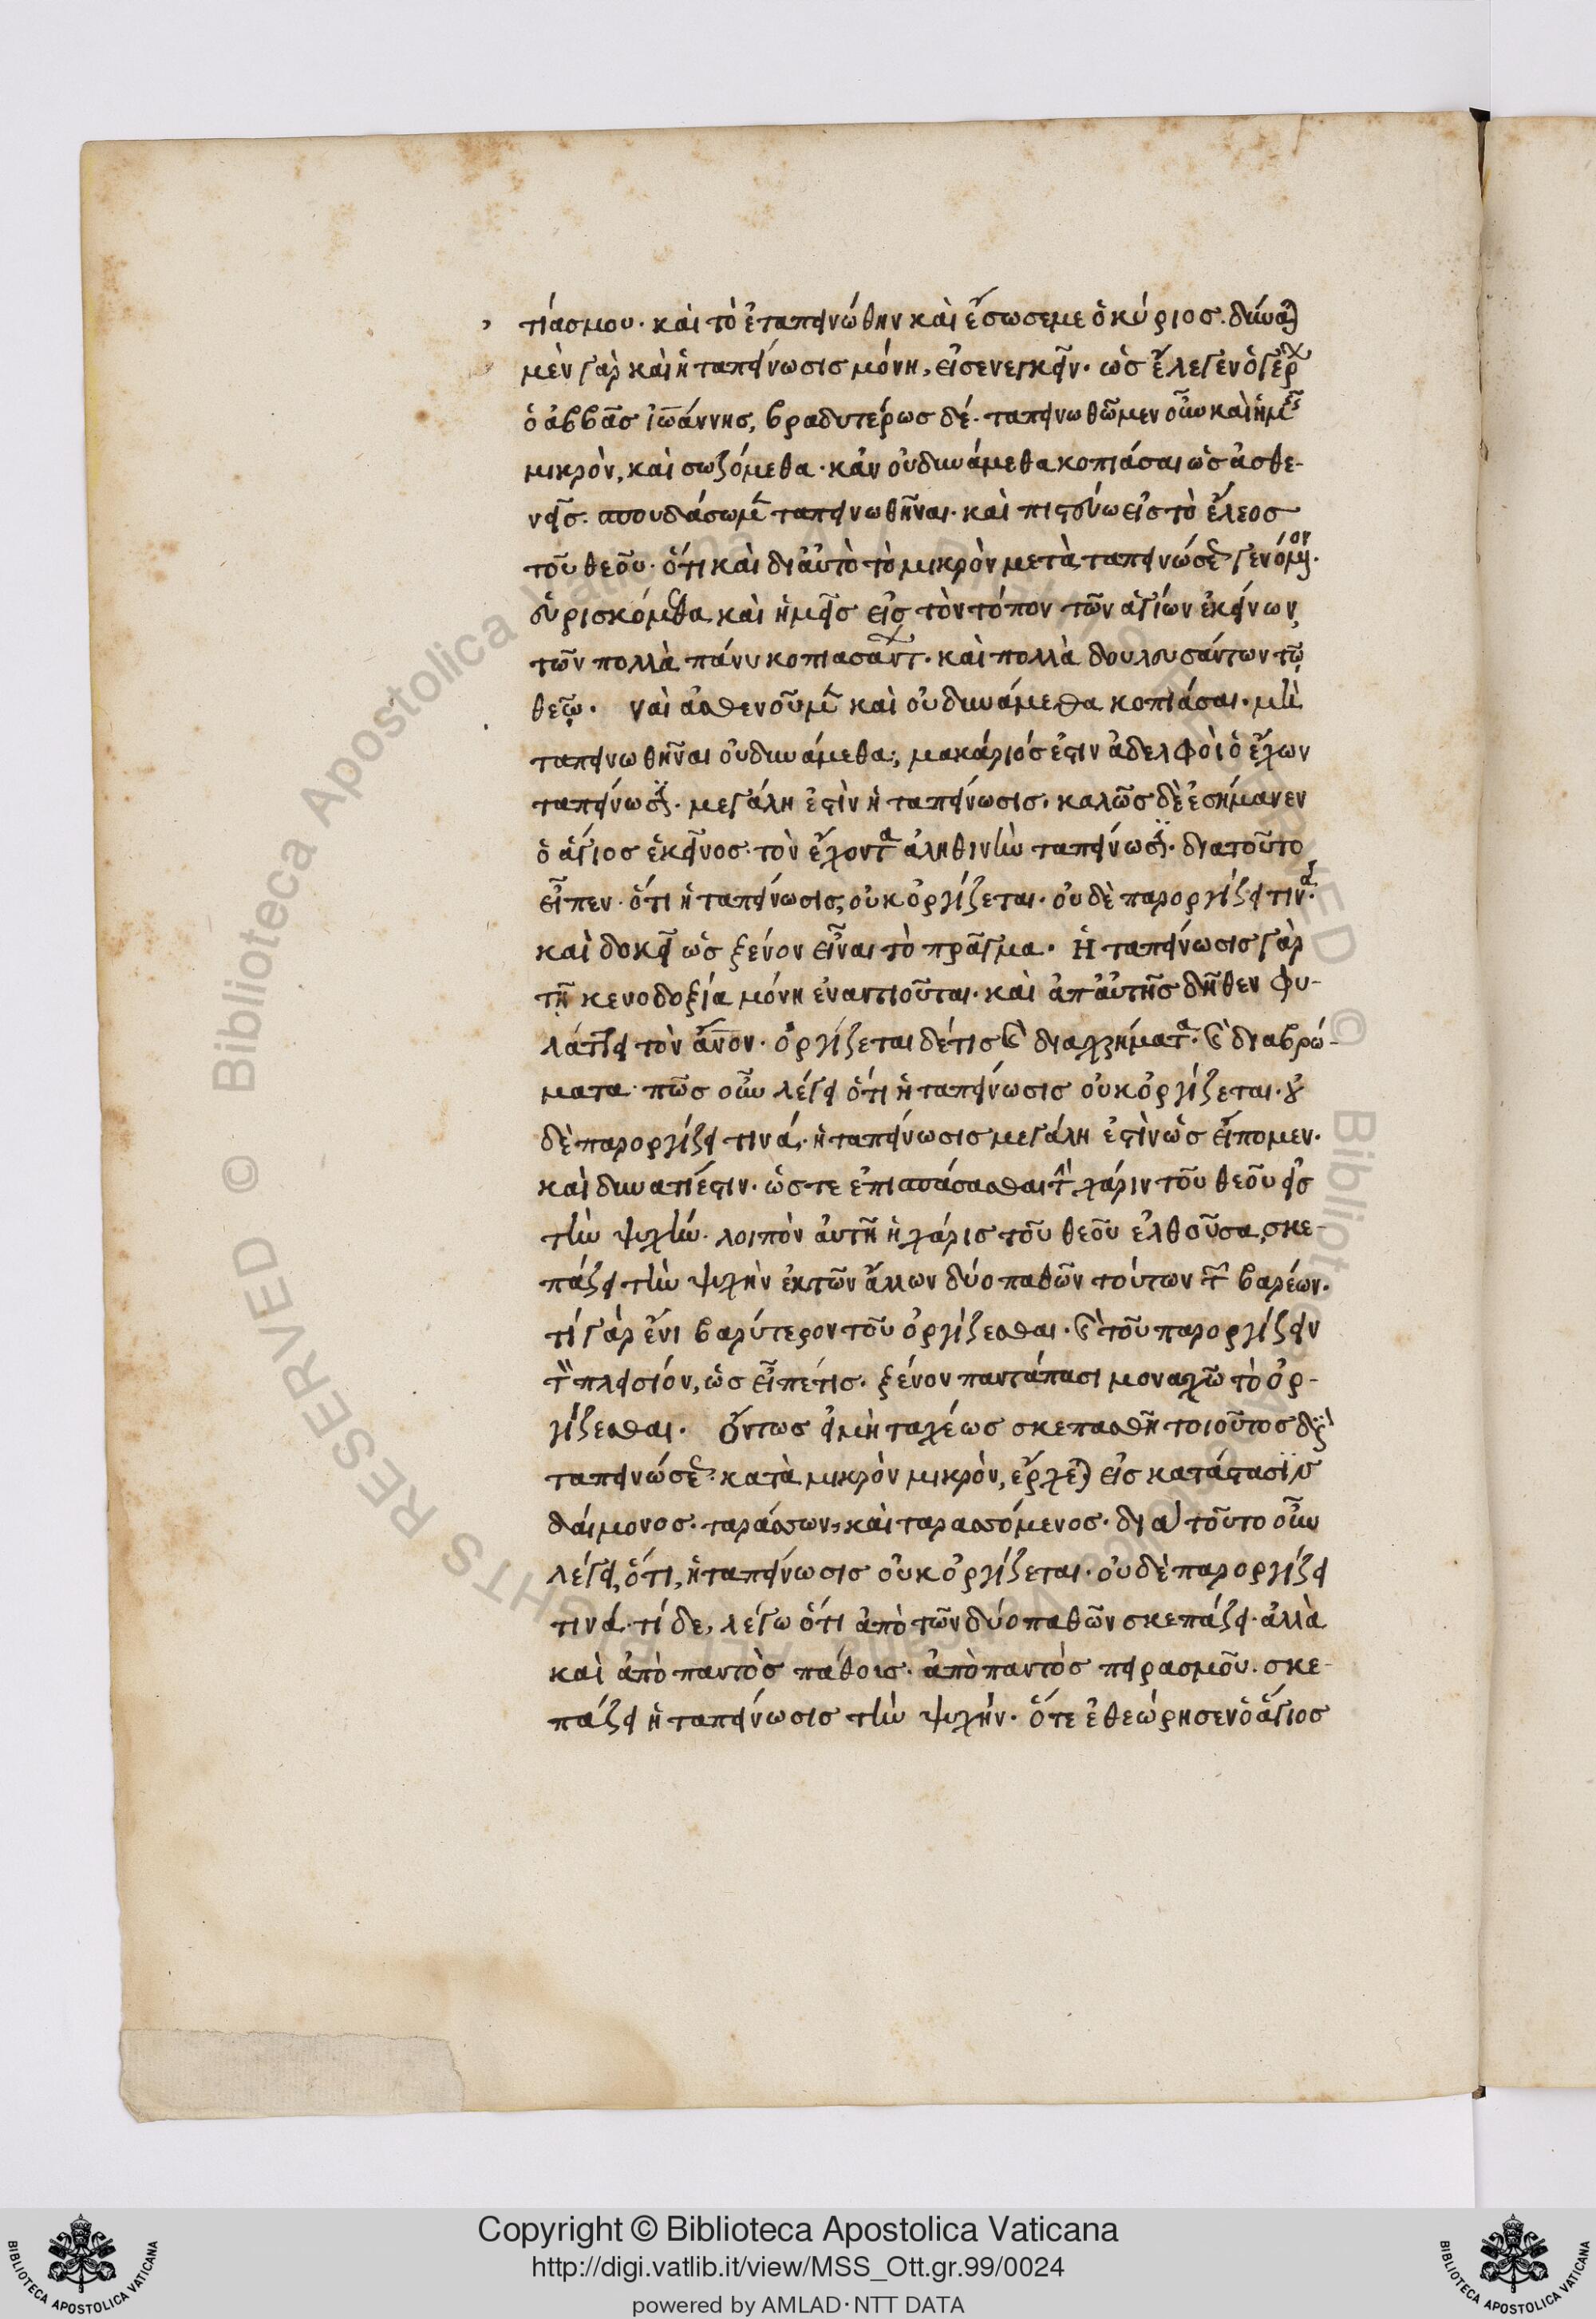 τίας μου· καὶ τὸ ἐταπεινώθην καὶ ἔσωσέ με ὁ κύριος. δύναται
μὲν γὰρ καὶ ἡ ταπείνωσις μόνη, εἰσενεγκεῖν· ὡς ἔλεγεν ὁ γέρων
ὁ ἀββᾶς ἰωάννης, βραδυτέρως δέ· ταπεινωθῶμεν οὖν καὶ ἡμεῖς
μικρὸν, καὶ σωζόμεθα· κἂν οὐ δυνάμεθα κοπιάσαι ὡς ἀσθε-
νεῖς. σπουδάσωμεν ταπεινωθῆναι· καὶ πιστεύω εἰς τὸ ἔλεος
τοῦ θεοῦ· ὅτι καὶ δι αὐτὸ τὸ μικρὸν μετὰ ταπεινώσεως γενόμενον·
εὑρισκόμεθα καὶ ἡμεῖς εἰς τὸν τόπον τῶν ἁγίων ἐκείνων,
τῶν πολλὰ πάνυ κοπιασάντων· καὶ πολλὰ δουλευσάντων τῷ
θεῷ· ναὶ ἀσθενοῦμεν καὶ οὐ δυνάμεθα κοπιάσαι· μὴ
ταπεινωθῆναι οὐ δυνάμεθα; μακάριός ἐστιν ἀδελφοὶ ὁ ἔχων
ταπείνωσιν· μεγάλη ἐστὶν ἡ ταπείνωσις· καλῶς δὲ ἐσήμανεν
ὁ ἅγιος ἐκεῖνος· τὸν ἔχοντα ἀληθινὴν ταπείνωσιν· διατοῦτο
εἶπεν· ὅτι ἡ ταπείνωσις οὐκ ὀργίζεται· οὐδὲ παροργίζει τινά·
καὶ δοκεῖ ὡς ξένον εἶναι τὸ πρᾶγμα· Ἡ ταπείνωσις γὰρ
τῇ κενοδοξία μόνη ἐναντιοῦται· καὶ ἀπ αὐτῆς δῆθεν φυ-
λάττει τὸν ἄνον· ὀργίζεται δέ τις καὶ διὰ χρήματα· καὶ διὰ βρώ-
ματα· πῶς οὖν λέγει ὅτι ἡ ταπείνωσις οὐκ ὀργίζεται· οὐ
δὲ παροργίζει τινά· ἡ ταπείνωσις μεγάλη ἐστὶν ὡς εἴπομεν·
καὶ δυνατὴ ἐστιν· ὥστε ἐπισπάσασθαι τὴν χάριν τοῦ θεοῦ εἰς
τὴν ψυχήν· λοιπὸν αὐτὴ ἡ χάρις τοῦ θεοῦ ἐλθοῦσα, σκε-
πάζει τὴν ψυχὴν ἐκ τῶν ἄλλων δύο παθῶν τούτων τῶν βαρέων·
τί γὰρ ἔνι βαρύτερον τοῦ ὀργίζεσθαι· καὶ τοῦ παροργίζειν
τὸν πλησίον, ὡς εἶπέ τις· ξένον παντάπασι μοναχῶ τὸ ὀρ-
γίζεσθαι· Ὄντως εἰ μὴ ταχέως σκεπασθῆ τοιοῦτος διὰ
ταπεινώσεως· κατὰ μικρὸν μικρὸν, ἔρχεται εἰς κατάστασιν
δαίμονος· ταράσσων, καὶ ταρασσόμενος· διὰ τοῦτο οὖν
λέγει, ὅτι, ἡ ταπείνωσις οὐκ ὀργίζεται· οὐδὲ παροργίζει
τινά· τί δε, λέγω ὅτι ἀπὸ τῶν δύο παθῶν σκεπάζει· ἀλλὰ
καὶ ἀπὸ παντὸς πάθους· ἀπὸ παντὸς πειρασμοῦ· σκε-
πάζει ἡ ταπείνωσις τὴν ψυχήν· ὅτε ἐθεώρησεν ὁ ἅγιος
Copyright © Biblioteca Apostolica Vaticana
http://digi.vatlib.it/view/MSS_Ott.gr.99/0024
powered by AMLAD·NTT DATA